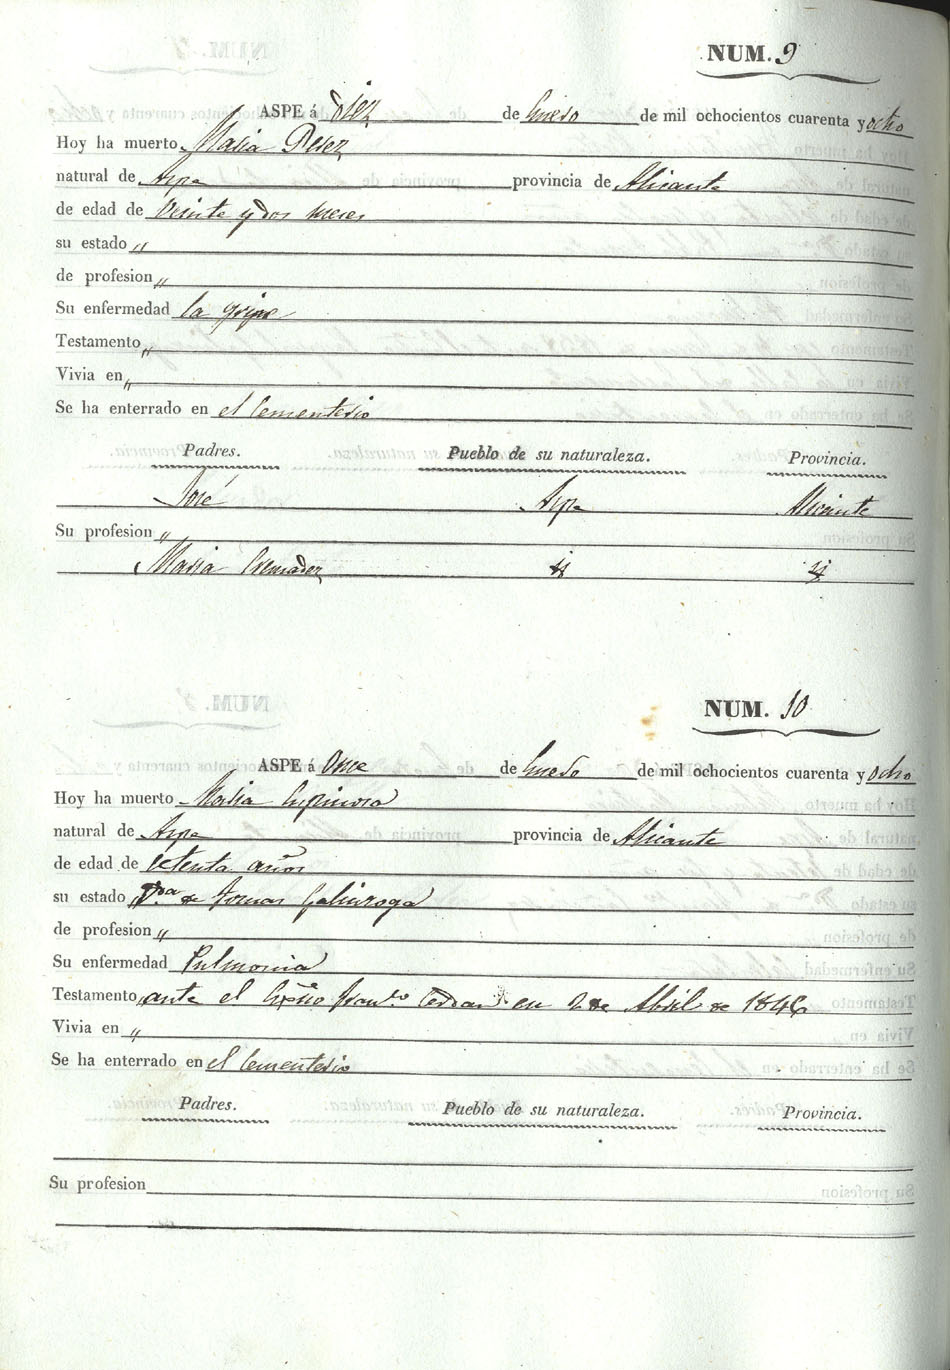 NUM. 9
ASPE á diez de Enero de mil ochocientos cuarenta y ocho
Hoy ha muerto Maria Perez
natural de Aspe provincia de Alicante
de edad de veinte y dos meses
su estado „
de profesion „
Su enfermedad la gripe
Testamento „
Vivia en „
Se ha enterrado en el Cementerio
Padres. Pueblo de su naturaleza. Provincia.
José Aspe Alicante
Su profesion „
Maria Cremadez id id
NUM. 10
ASPE á Once de Enero de mil ochocientos cuarenta y ocho
Hoy ha muerto Maria Espinosa
natural de Aspe provincia de Alicante
de edad de setenta años
su estado V.da de Tomas
de profesion „
Su enfermedad Pulmonia
Testamento ante el Esño Fran.co Cerdan en 2 de Abril de 1846
Vivia en „
Se ha enterrado en el Cementerio
Padres. Pueblo de su naturaleza. Provincia.
Su profesion